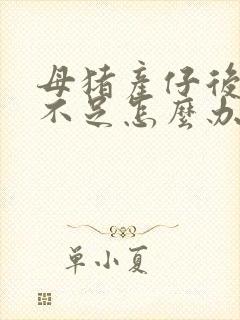 母猪產仔後
不足怎麼办
單小夏